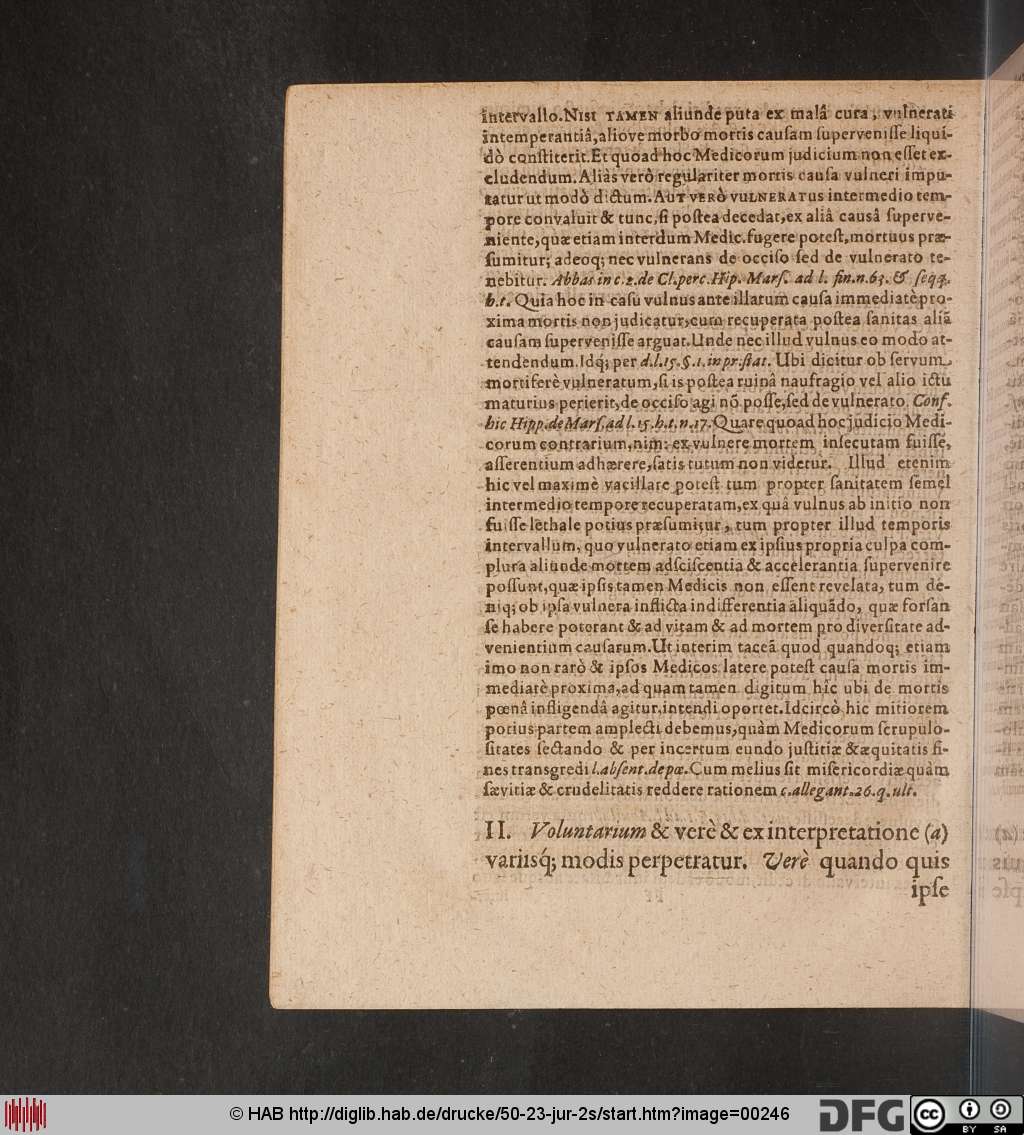 intervallo. NISI TAMEN aliunde puta ex malâ cura, vulnerati
intemperantiâ, aliove morbo mortis causam supervenisse liqui-
dò constiterit. Et quoad hoc Medicorum judicium non esset ex-
cludendum. Aliàs verò regulariter mortis causa vulneri impu-
tatur ut modò dictum. AUT VERÒ VULNERATUS intermedio tem-
pore convaluit & tunc, si postea decedat, ex aliâ causâ superve-
niente, quæ etiam interdum Medic. fugere potest, mortuus præ-
sumitur; adeoq; nec vulnerans de occiso sed de vulnerato te-
nebitur. Abbas in c. 2. de Cl. perc. Hip. Mars. ad l. fin. n. 63. & seqq.
h. t. Quia hoc in casu vulnus ante illatum causa immediatè pro-
xima mortis non judicatur, cum recuperata postea sanitas aliã
causam supervenisse arguat. Unde nec illud vulnus eo modo at-
tendendum. Idq́; per d. l. 15. §. 1. in pr. stat. Ubi dicitur ob servum
mortiferè vulneratum, si is postea ruinâ naufragio vel alio ictu
maturius perierit, de occiso agi nõ posse, sed de vulnerato. Conf.
hic Hipp. de Mars. ad l. 15. h. t. n. 17. Quare quoad hoc judicio Medi-
corum contrarium, nim: ex vulnere mortem insecutam fuisse,
asserentium adhærere, satis tutum non videtur. Illud etenim
hic vel maximè vacillare potest tum propter sanitatem semel
intermedio tempore recuperatam, ex quâ vulnus ab initio non
fuisse lethale potius præsumitur, tum propter illud temporis
intervallum, quo vulnerato etiam ex ipsius propria culpa com-
plura aliunde mortem adsciscentia & accelerantia supervenire
possunt, quæ ipsis tamen Medicis non essent revelata, tum de-
niq; ob ipsa vulnera inflicta indifferentia aliquãdo, quæ forsan
se habere poterant & ad vitam & ad mortem pro diversitate ad-
venientium causarum. Ut interim taceã quod quandoq; etiam
imo non rarò & ipsos Medicos latere potest causa mortis im-
mediatè proxima, ad quam tamen digitum hîc ubi de mortis
pœnâ infligendâ agitur, intendi oportet. Idcircò hic mitiorem
potius partem amplecti debemus, quàm Medicorum scrupulo-
sitates sectando & per incertum eundo justitiæ & æquitatis fi-
nes transgredi l. absent. de pœ. Cum melius sit misericordiæ quàm
sævitiæ & crudelitatis reddere rationem c. allegant. 26. q. ult.
II. Voluntarium & verè & ex interpretatione (a)
variisq́; modis perpetratur. Verè quando quis
ipse
© HAB http://diglib.hab.de/drucke/50-23-jur-2s/start.htm?image=00246
DFG
cc BY SA